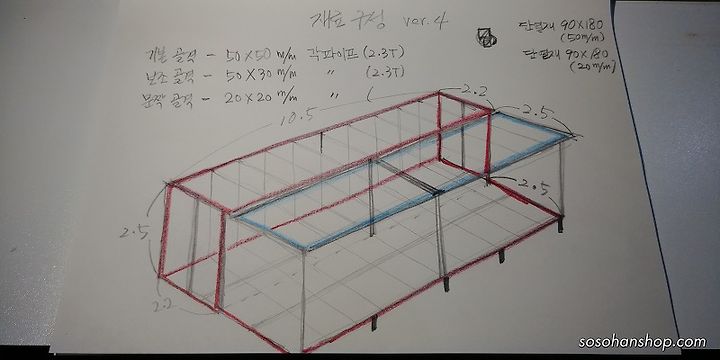 재료 규정 ver.4
단열재 90×180
(50m/m)
단열재 90×180
(20m/m)
기본 골격 - 50×50 m/m 각파이프 (2.3T)
보조 골격 - 50×30 m/m 〃 (2.3T)
문짝 골격 - 20×20 m/m 〃 (
2.2
10.5
2.5
2.5
2.5
2.2
sosohanshop.com